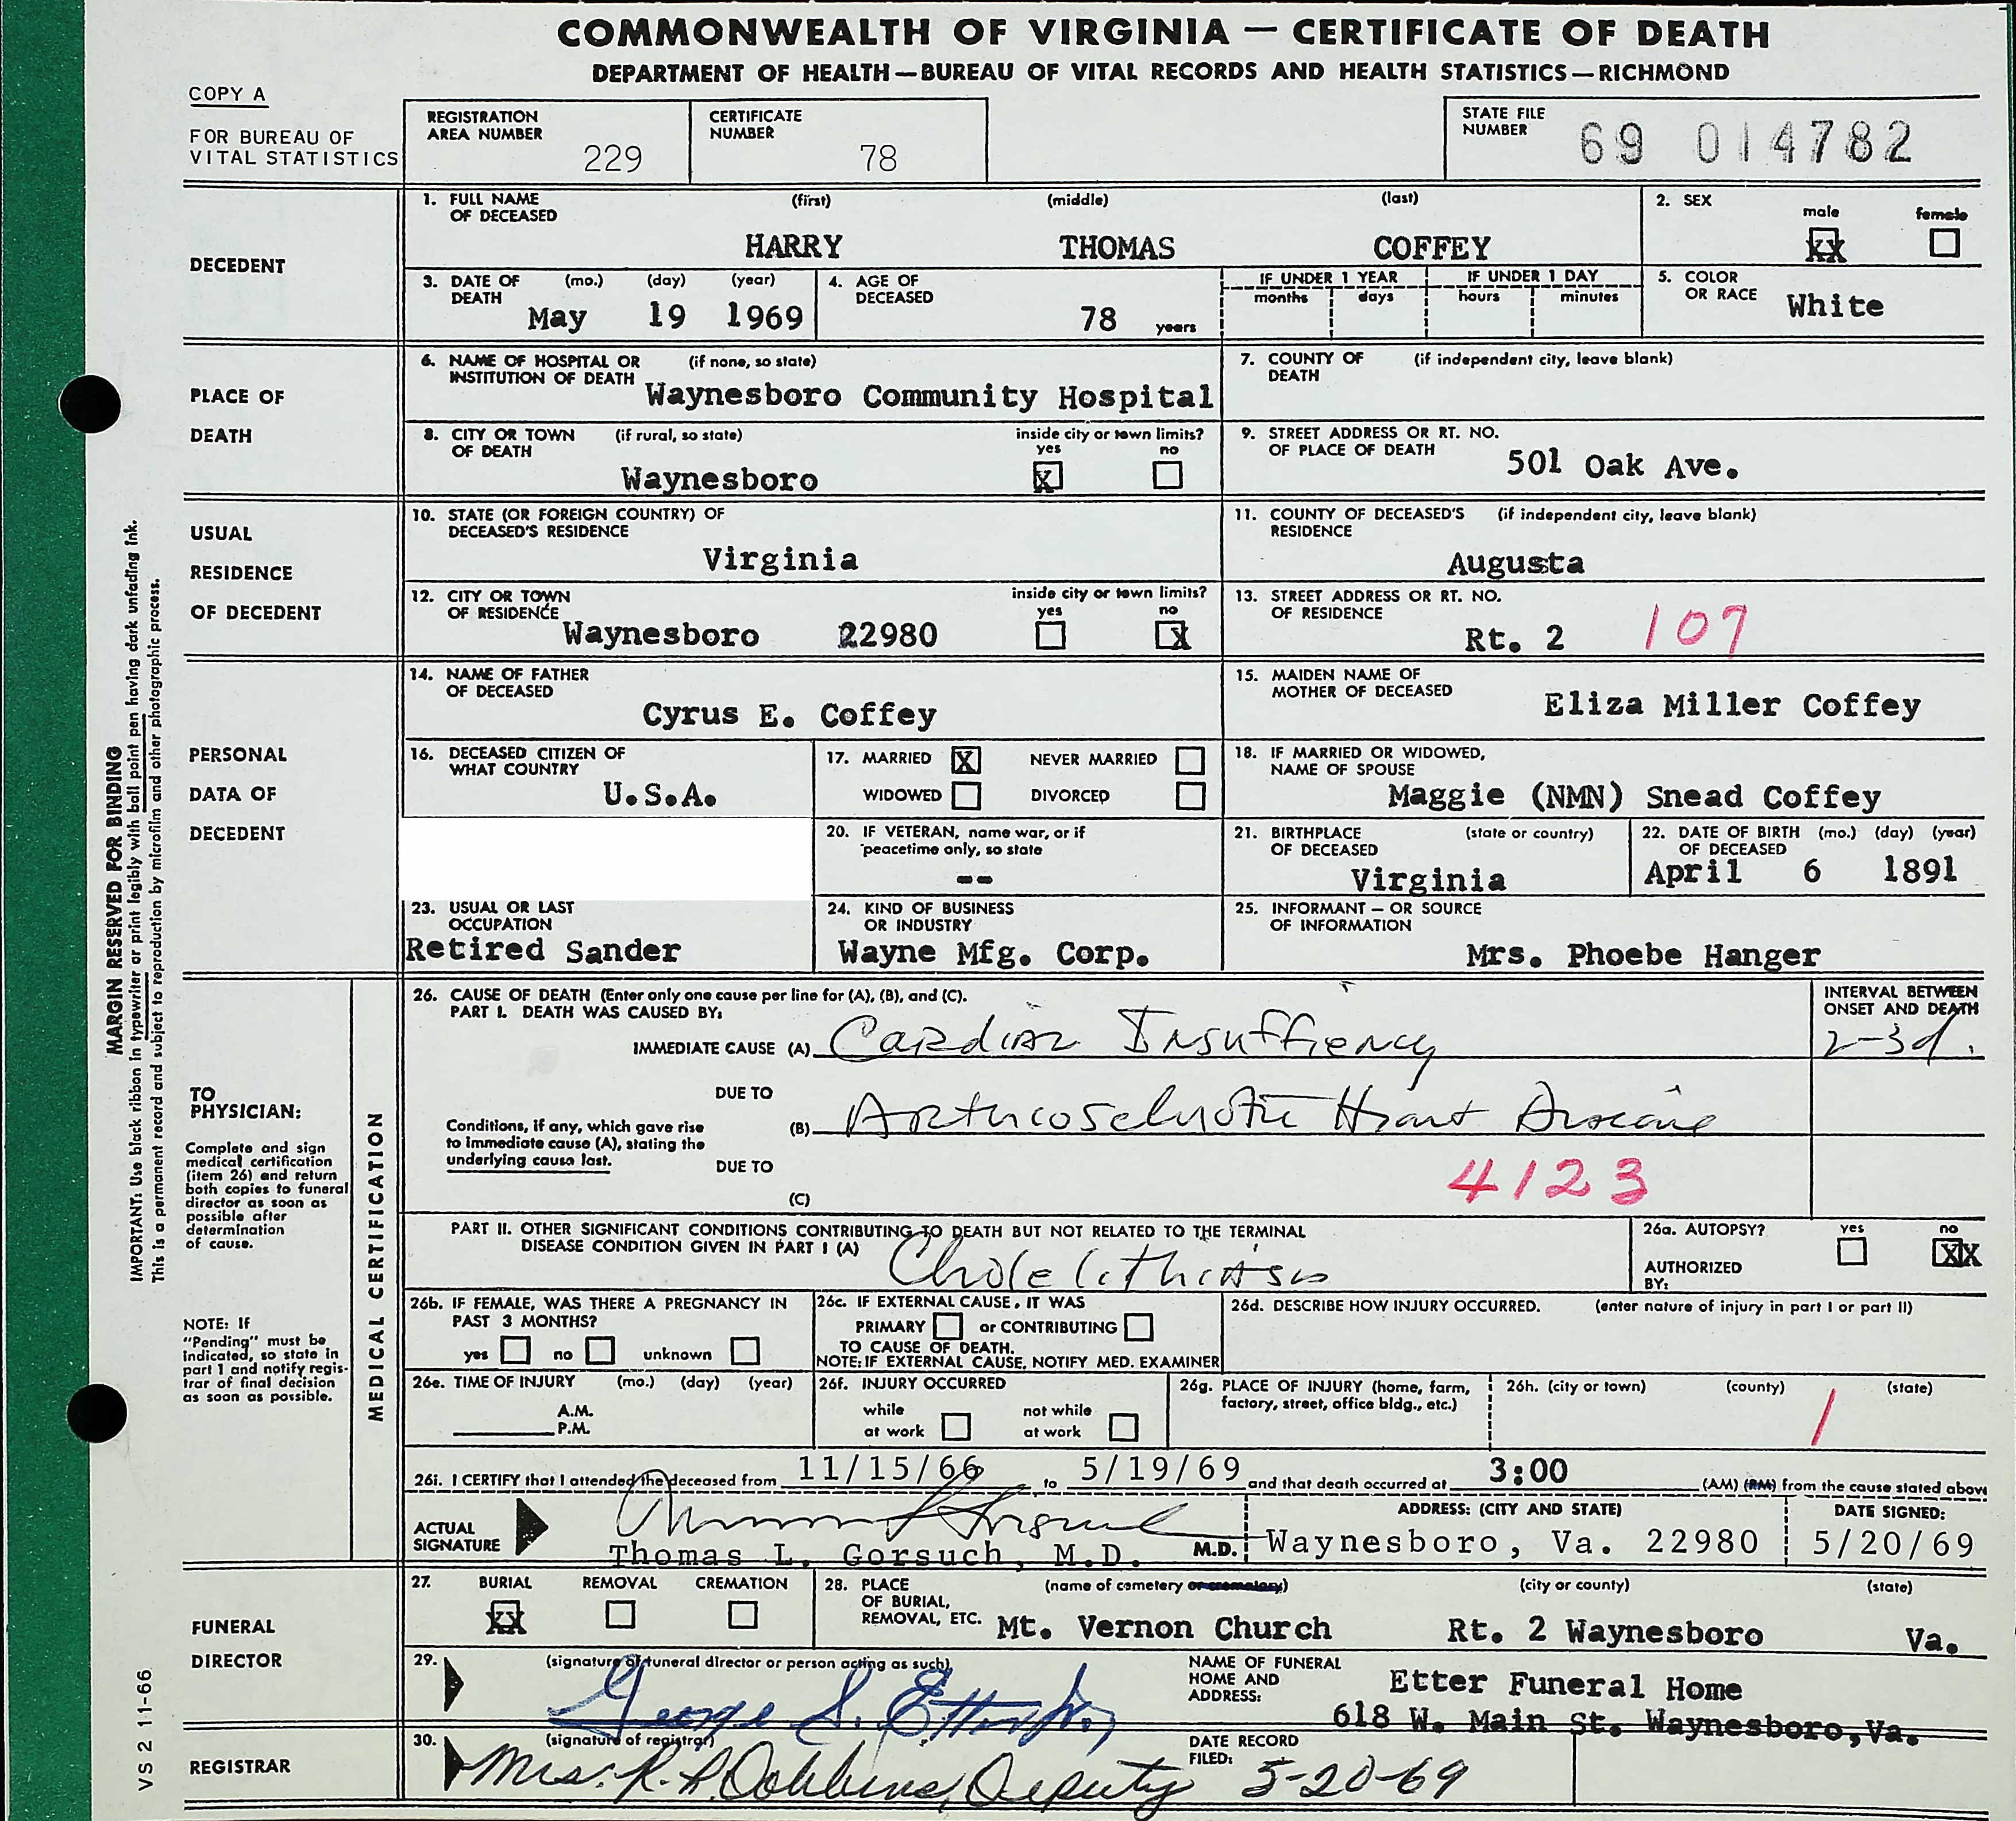 COMMONWEALTH OF VIRGINIA — CERTIFICATE OF DEATH
DEPARTMENT OF HEALTH—BUREAU OF VITAL RECORDS AND HEALTH STATISTICS—RICHMOND
COPY A
FOR BUREAU OF
VITAL STATISTICS
REGISTRATION
AREA NUMBER
229
CERTIFICATE
NUMBER
78
STATE FILE
NUMBER
69 014782
DECEDENT
1. FULL NAME (first) (middle) (last)
OF DECEASED
HARRY THOMAS COFFEY
2. SEX
male female
XX
3. DATE OF (mo.) (day) (year)
DEATH
May 19 1969
4. AGE OF
DECEASED
78 years
IF UNDER 1 YEAR IF UNDER 1 DAY
months days hours minutes
5. COLOR
OR RACE White
PLACE OF
DEATH
6. NAME OF HOSPITAL OR (if none, so state)
INSTITUTION OF DEATH Waynesboro Community Hospital
7. COUNTY OF (if independent city, leave blank)
DEATH
8. CITY OR TOWN (if rural, so state) inside city or town limits?
OF DEATH yes no
Waynesboro X
9. STREET ADDRESS OR RT. NO.
OF PLACE OF DEATH 501 Oak Ave.
USUAL
RESIDENCE
OF DECEDENT
10. STATE (OR FOREIGN COUNTRY) OF
DECEASED'S RESIDENCE
Virginia
11. COUNTY OF DECEASED'S (if independent city, leave blank)
RESIDENCE
Augusta
12. CITY OR TOWN inside city or town limits?
OF RESIDENCE yes no
Waynesboro 22980 X
13. STREET ADDRESS OR RT. NO.
OF RESIDENCE
Rt. 2 107
PERSONAL
DATA OF
DECEDENT
14. NAME OF FATHER
OF DECEASED
Cyrus E. Coffey
15. MAIDEN NAME OF
MOTHER OF DECEASED Eliza Miller Coffey
16. DECEASED CITIZEN OF
WHAT COUNTRY
U.S.A.
17. MARRIED X NEVER MARRIED
WIDOWED DIVORCED
18. IF MARRIED OR WIDOWED,
NAME OF SPOUSE
Maggie (NMN) Snead Coffey
20. IF VETERAN, name war, or if
peacetime only, so state
--
21. BIRTHPLACE (state or country)
OF DECEASED
Virginia
22. DATE OF BIRTH (mo.) (day) (year)
OF DECEASED
April 6 1891
23. USUAL OR LAST
OCCUPATION
Retired Sander
24. KIND OF BUSINESS
OR INDUSTRY
Wayne Mfg. Corp.
25. INFORMANT — OR SOURCE
OF INFORMATION
Mrs. Phoebe Hanger
MARGIN RESERVED FOR BINDING
IMPORTANT: Use black ribbon in typewriter or print legibly with ball point pen having dark unfading ink.
This is a permanent record and subject to reproduction by microfilm and other photographic process.
VS 2 11-66
TO
PHYSICIAN:
Complete and sign
medical certification
(item 26) and return
both copies to funeral
director as soon as
possible after
determination
of cause.
NOTE: If
"Pending" must be
indicated, so state in
part 1 and notify regis-
trar of final decision
as soon as possible.
MEDICAL CERTIFICATION
26. CAUSE OF DEATH (Enter only one cause per line for (A), (B), and (C).
PART I. DEATH WAS CAUSED BY:
INTERVAL BETWEEN
ONSET AND DEATH
IMMEDIATE CAUSE (A) Cardiac Insuffiency 2-3d.
DUE TO
Conditions, if any, which gave rise
to immediate cause (A), stating the
underlying cause last.
(B) Arteriosclerotic Heart Disease
DUE TO
(C)
4123
PART II. OTHER SIGNIFICANT CONDITIONS CONTRIBUTING TO DEATH BUT NOT RELATED TO THE TERMINAL
DISEASE CONDITION GIVEN IN PART I (A)
Cholelithiasis
26a. AUTOPSY? yes no
XX
AUTHORIZED
BY:
26b. IF FEMALE, WAS THERE A PREGNANCY IN
PAST 3 MONTHS?
yes no unknown
26c. IF EXTERNAL CAUSE, IT WAS
PRIMARY or CONTRIBUTING
TO CAUSE OF DEATH.
NOTE: IF EXTERNAL CAUSE, NOTIFY MED. EXAMINER
26d. DESCRIBE HOW INJURY OCCURRED. (enter nature of injury in part I or part II)
26e. TIME OF INJURY (mo.) (day) (year)
A.M.
P.M.
26f. INJURY OCCURRED
while not while
at work at work
26g. PLACE OF INJURY (home, farm,
factory, street, office bldg., etc.)
26h. (city or town) (county) (state)
1
26i. I CERTIFY that I attended the deceased from 11/15/66 to 5/19/69 and that death occurred at 3:00 (AM) (PM) from the cause stated above
ACTUAL
SIGNATURE
Thomas L. Gorsuch, M.D. M.D.
ADDRESS: (CITY AND STATE)
Waynesboro, Va. 22980
DATE SIGNED:
5/20/69
FUNERAL
DIRECTOR
27. BURIAL REMOVAL CREMATION
XX
28. PLACE (name of cemetery or crematory) (city or county) (state)
OF BURIAL,
REMOVAL, ETC. Mt. Vernon Church Rt. 2 Waynesboro Va.
29. (signature of funeral director or person acting as such)
George S. Etter Jr.
NAME OF FUNERAL
HOME AND
ADDRESS:
Etter Funeral Home
618 W. Main St. Waynesboro, Va.
REGISTRAR
30. (signature of registrar)
Mrs. R. P. Dobbins, Deputy
DATE RECORD
FILED: 5-20-69